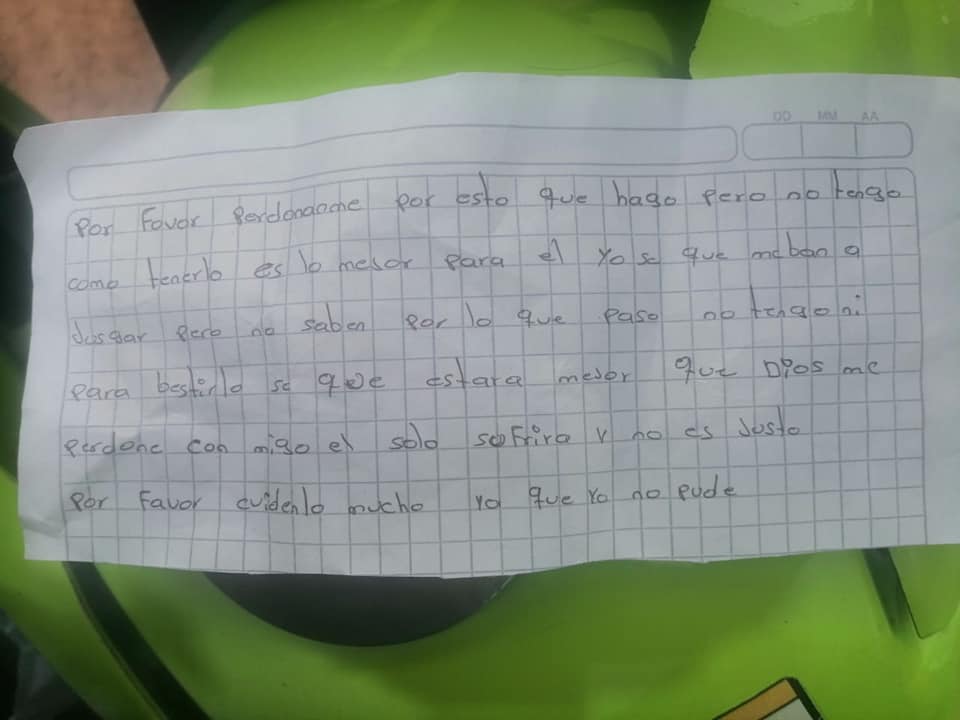 DD MM AA
Por Favor Perdonanme por esto que hago pero no tengo
como tenerlo es lo mesor para el Yo se que me ban a
Jusgar pero no saben por lo que paso no tengo ni
para bestirlo se que estara mesor que Dios me
perdone con migo el solo sufrira y no es Justo
Por Favor cuidenlo mucho ya que yo no pude